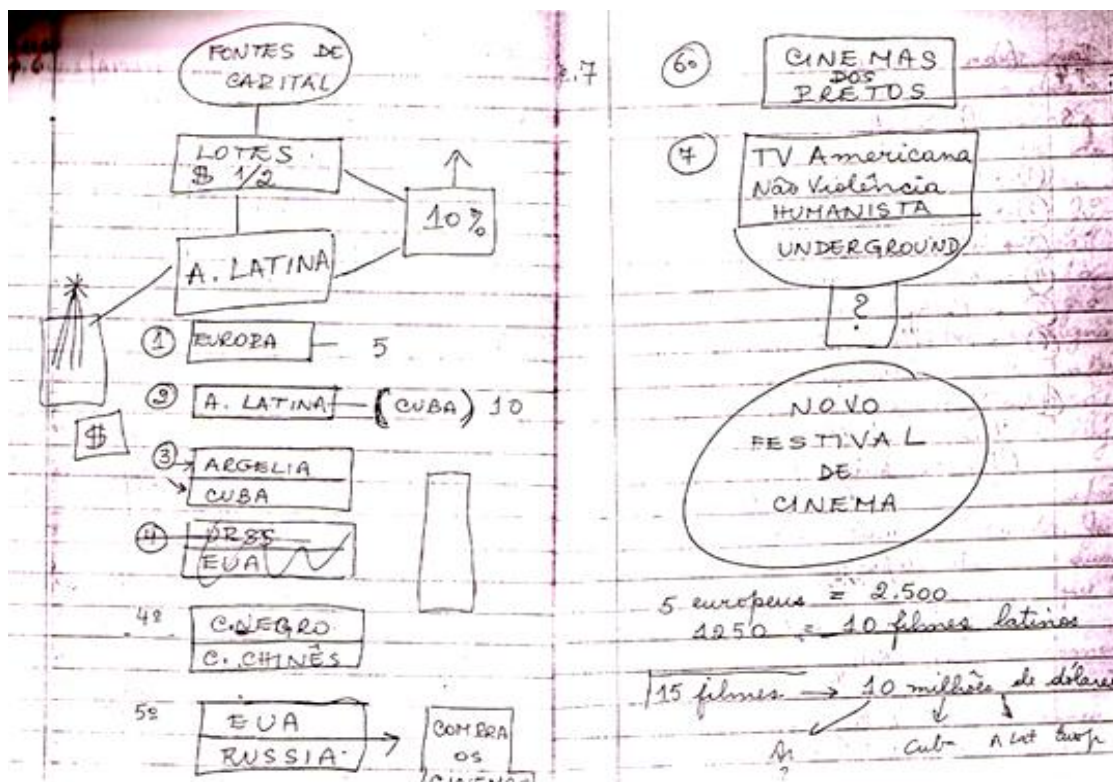 FONTES DE
CAPITAL
LOTES
$ 1/2
10%
A. LATINA
① EUROPA 5
② A. LATINA (CUBA) 10
$
③ ARGELIA
CUBA
④
EUA
4º C. NEGRO
C. CHINÊS
5º EUA
RUSSIA
COMPRA
OS
CINEMAS
6º CINEMAS
DOS
PRETOS
7 TV Americana
Não Violência
HUMANISTA
UNDERGROUND
?
NOVO
FESTIVAL
DE
CINEMA
5 europeus = 2.500
1250 = 10 filmes latinos
15 filmes → 10 milhões de dólares
Cuba A Lat Europ
?